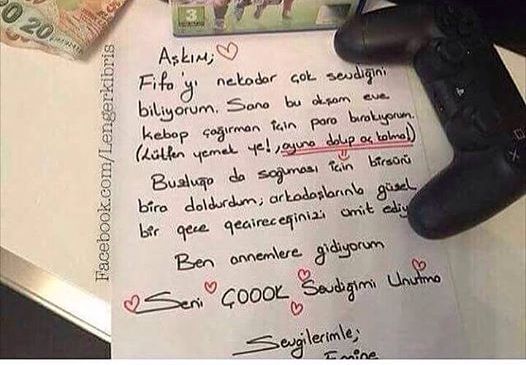 20
3
Facebook.com/Lengerkibris
Aşkım;
Fifa'yı nekadar çok sevdiğini
biliyorum. Sana bu akşam eve
kebap çağırman için para bırakıyorum.
(Lütfen yemek ye!, oyuna dalıp aç kalma!)
Buzluğa da soğuması için birsürü
bira doldurdum, arkadaşlarınla güzel
bir gece geçireceğinizi ümit ediy
Ben annemlere gidiyorum
Seni ÇOOOK Sevdiğimi Unutma
Sevgilerimle;
Emine